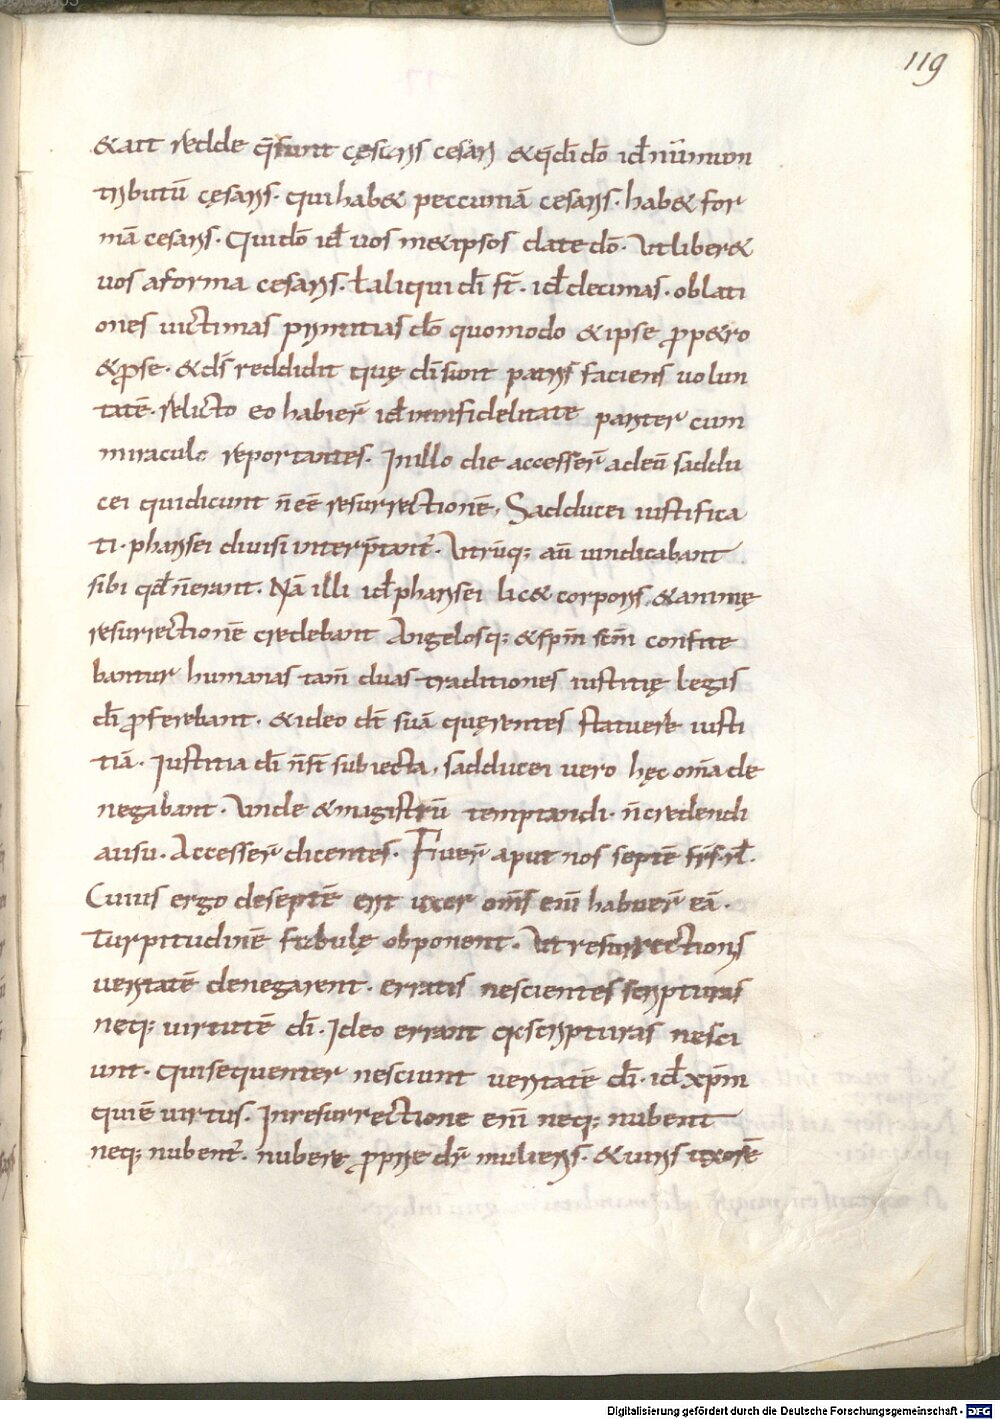 119
&ait redde q̄ sunt cęsaris cesari &q̄ di do id nūmum
tributū cęsaris. qui hab& peccuniā cesaris. hab& for
mā cesaris. Qui dō id uos m&ipsos date dō. Ut liber&
uos a forma cesaris. ł aliqui di st̄. id decimas. oblati
ones uictimas primitias dō quomodo &ipse pp&ro
&pse. &ds reddidit quę di sunt patris faciens uolun
tatē. Relicto eo habier̄ id in infidelitate pariter cum
miraculo reportantes. In illo die accesser̄ ad eū saddu
cei qui dicunt n̄ eē resurrectionē. Sadducei iustifica
ti. pharisei diuisi interp̄tant̄. Utrūq; au̅ uindicabant
sibi qd n̄ erant. Nā illi id pharisei lic& corporis &animę
resurrectionē credebant Angelosq; &sp̄m sc̄m confite
bantur humanas tam̄ duas traditiones iustitię legis
di pferebant. &ideo dt̄ suā quęrentes statuere iusti
tiā. Iustitia di n̄ st̄ subiecta, sadducei uero hęc om̄a de
negabant. Unde &magistrū temptandi. n̄ credendi
ausu. Accesser̄ dicentes. Fuer̄ aput nos septē frs̄ rł.
Cuius ergo de septē erit uxor om̄s eni̅ habuer̄ eā.
Turpitudinē fabulę obponent. Ut resurrectionis
ueritatē denegarent. erratis nescientes scripturas
neq; uirtutē di. Ideo errant q̄a scripturas nesci
unt. Qui sequenter nesciunt ueritatē di. id xp̄m
qui ē uirtus. In resurrectione eni̅ neq; nubent
neq; nubent̄. nubere pprie dr̄ mulieris. &uiris uxorē
Digitalisierung gefördert durch die Deutsche Forschungsgemeinschaft - DFG